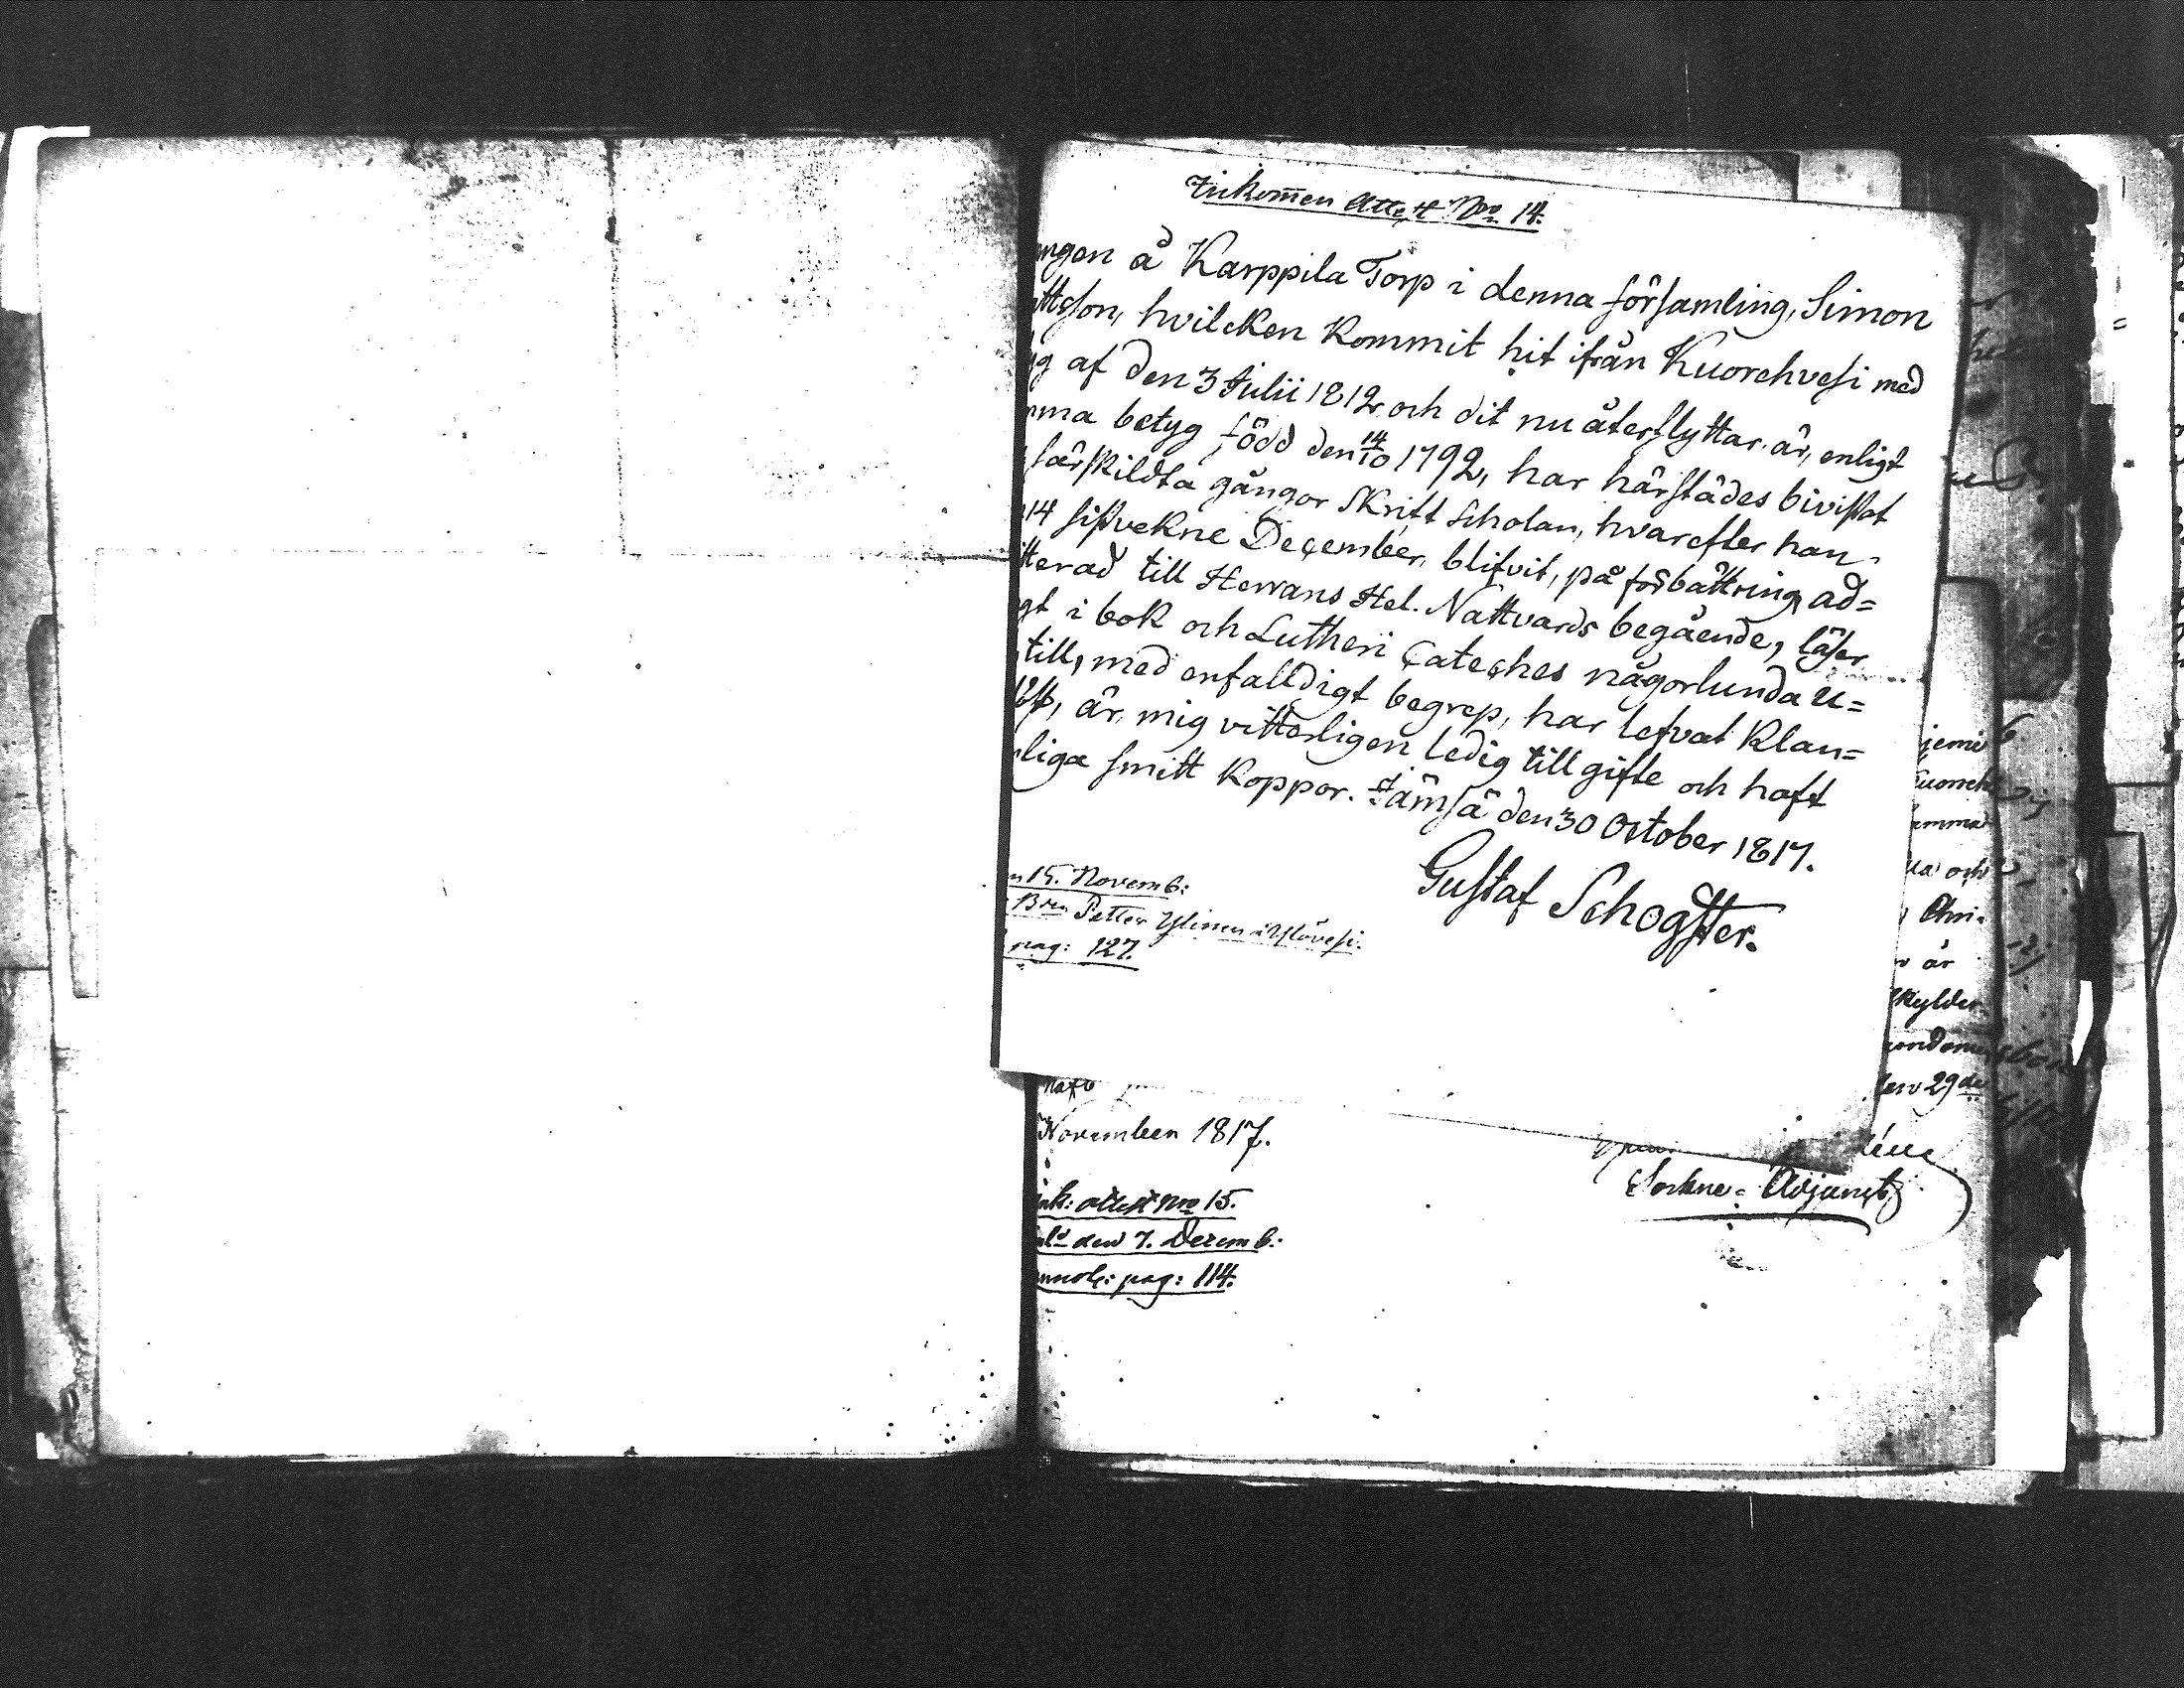 Inkommen Attest Nro 14.
ngen å Karppila Torp i denna församling, Simon
ttsson, hvilcken kommit hit ifrån Kuorehvesi med
yg af den 3 Julii 1812 och dit nu återflyttar, är, enligt
mma betyg född den 14/10 1792, har härstädes bivistat
särskildta gångor Skrift Scholan, hvarefter han
14 sistvekne December, blifvit, på förbättring, ad=
tterad till Herrans Hel. Nattvards begående, läser
gt i bok och Lutheri Cateches någorlunda u=
till, med enfalldigt begrep, har lefvat klan=
löst, är, mig vitterligen ledig till gifte och haft
liga smitt koppor. Jämsä den 30 October 1817.
Gustaf Schogster.
n 15. Novemb:
Petter Ylinen i Ylövesi.
pag: 127.
jemi
uoreh
amma
la och
Chri-
är
skylder
den 29de
haft
November 1817.
Sockne-Adjunct
ink: attest Nro 15.
den 7. Decemb:
annot: pag: 114.